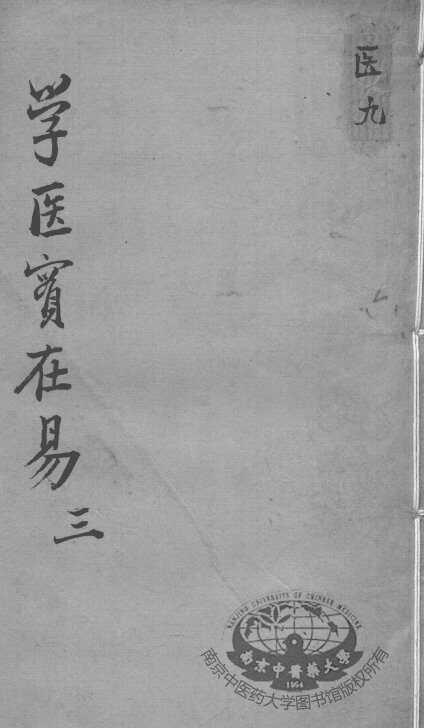 医九
学医實在易
三
NANJING UNIVERSITY OF CHINESE MEDICINE
南京中醫藥大學
1954
南京中医药大学图书馆版权所有